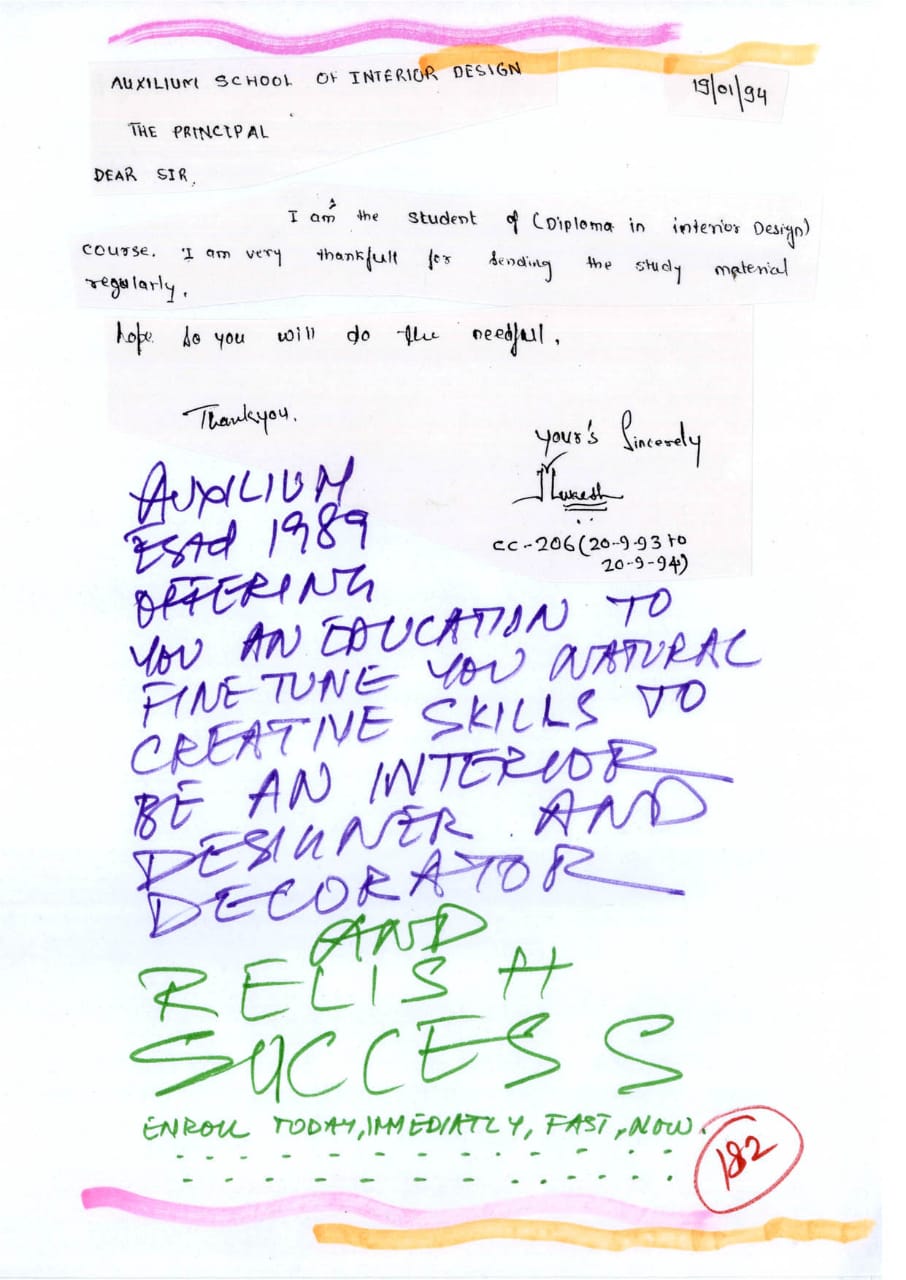 AUXILIUM SCHOOL OF INTERIOR DESIGN
19/01/94
THE PRINCIPAL
DEAR SIR,
I am the student of (Diploma in interior Design)
course. I am very thankfull for sending the study material
regularly.
hope so you will do the needful.
Thankyou.
your's Sincerely
CC-206 (20-9-93 to
20-9-94)
AUXILIUM
ESTd 1989
OFFERING
YOU AN EDUCATION TO
FINE TUNE YOU NATURAL
CREATIVE SKILLS TO
BE AN INTERIOR
DESIGNER AND
DECORATOR
AND
RELISH
SUCCESS
ENROLL TODAY, IMMEDIATLY, FAST, NOW.
182